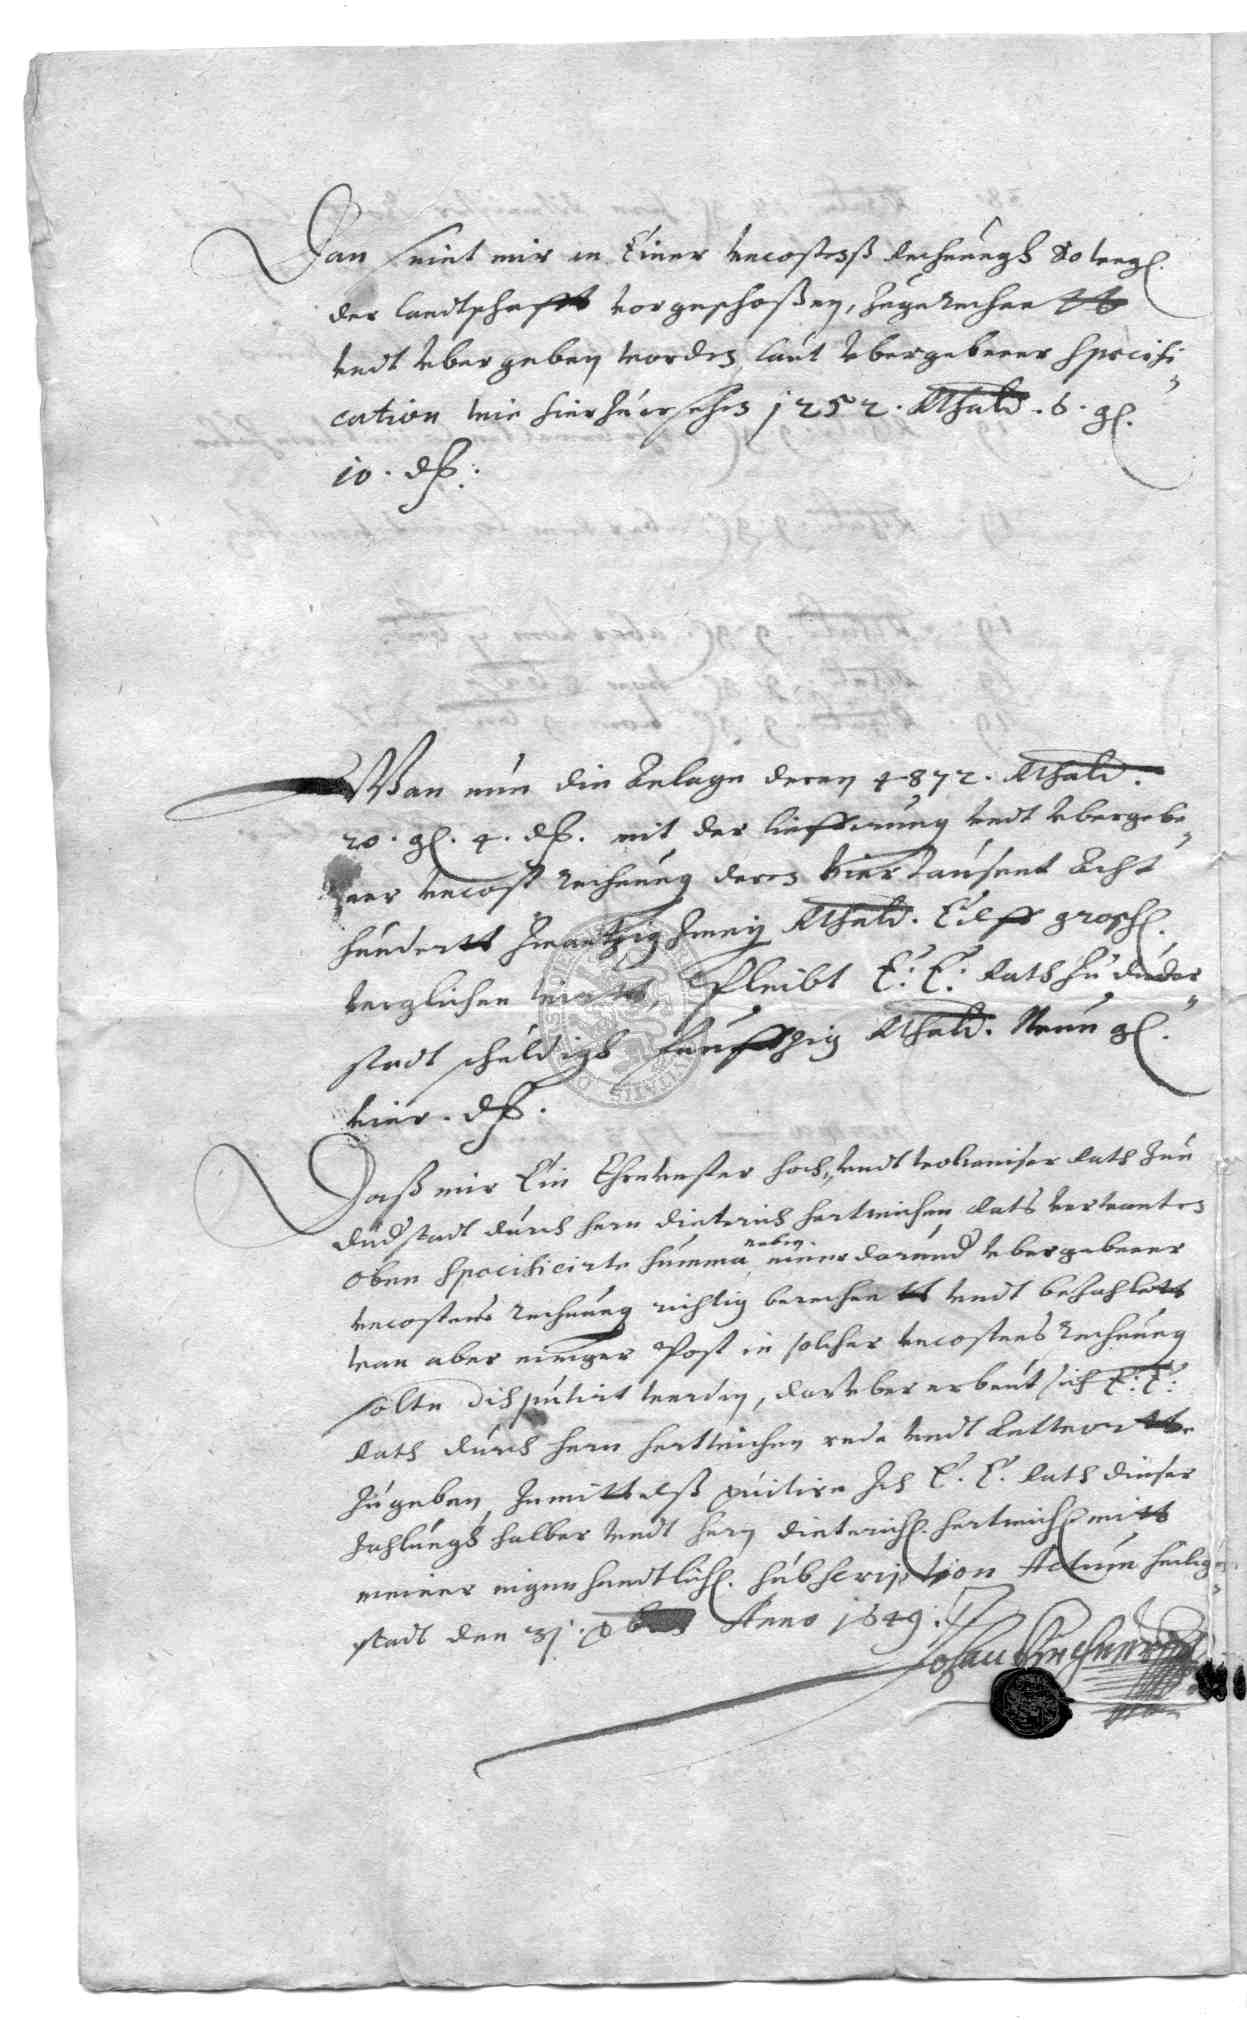 Dan seint mir in Einer Uncostenß Rechnungh so wegl.
der Landtschafft vorgeschoßen, zugerechnett
undt Ubergeben worden, laut Ubergebener Specifi„
cation wie hierhin zusehen 1252. Rthald. 6. gl.
10. dß:
Wan nun die Anlage deren 4872. Rthald.
20. gl. 4. dß. mit der lieferung undt Ubergebe„
ner Uncost Rechnung deren Viertausent Acht
hundertt Zwantzig Zweij Rthald. Eilff grosch.
verglichen wirtt, Pleibt E: E: Rath zu Duder„
stadt schuldigh funfftzig Rthald. Neun gl.
vier. dß.
Daß mir Ein Ehrnvester hoch„ undt wolweiser Rath zuu
Dudstadt durch hern Dieterich Hertwichen Rats verwanten
oben Specificirte summa neben einer darund Ubergebener
Uncostens Rechnung richtig berechnett undt bezahlett
wan aber einiger Post in solcher Uncostens Rechnung
solte disputirt werden, darueber erbeut sich E: E:
Rath durch hern Hertwichen rede undt Antwortt
zugeben, Inmittelß quitire Ich E. E. Rath dieser
Zahlungh halber undt hern Dieterich. Hertwich. mitt
meiner eigenhandtlich. subscription Actum heilig„
stadt den 31. Anno 1649.
Johan